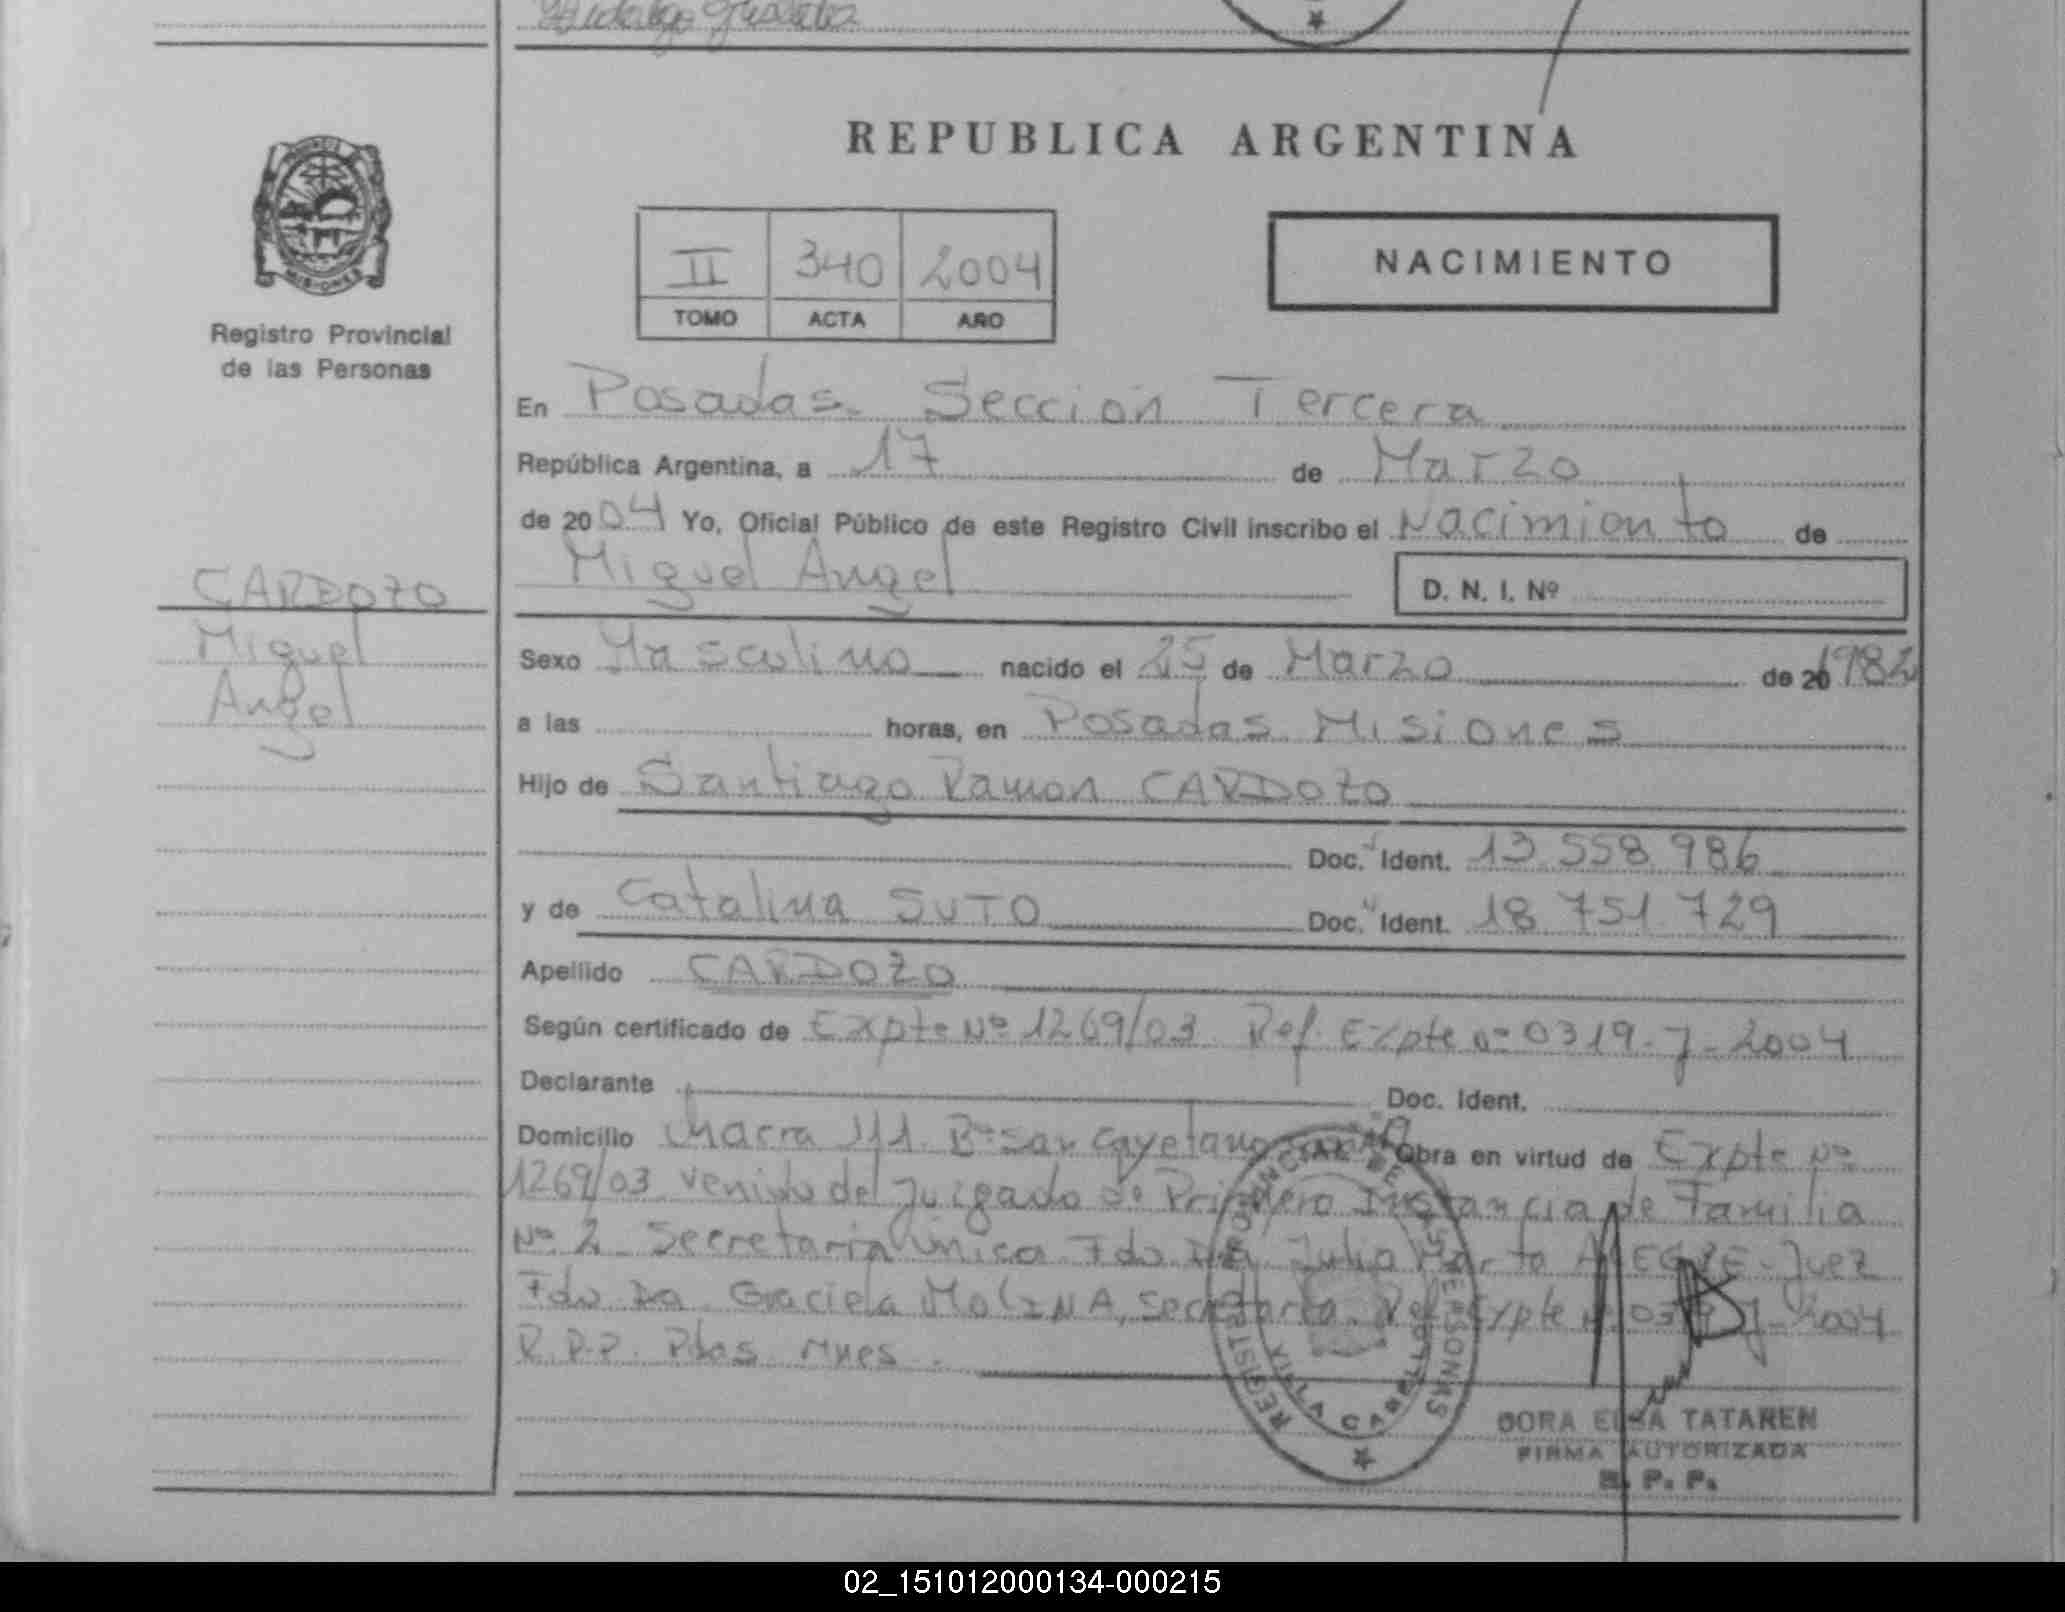 Hidalgo
REPUBLICA ARGENTINA
MISIONES
Registro Provincial
de las Personas
II 340 2004
TOMO ACTA AÑO
NACIMIENTO
En Posadas Sección Tercera
República Argentina, a 17 de Marzo
de 2004 Yo, Oficial Público de este Registro Civil inscribo el Nacimiento de
Miguel Angel D. N. I. Nº
CARDOZO
Miguel
Angel
Sexo Masculino nacido el 25 de Marzo de 20 1982
a las horas, en Posadas Misiones
Hijo de Santiago Ramon CARDOZO
Doc. Ident. 13.558.986
y de Catalina SUTO Doc. Ident. 18 751 729
Apellido CARDOZO
Según certificado de Expte Nº 1269/03 Ref. Expte nº 0319-J-2004
Declarante Doc. Ident.
Domicilio Chacra 111. Bº San Cayetano Obra en virtud de Expte Nº
1269/03 venido del Juzgado de Primera Instancia de Familia
Nº 2 Secretaria Unica Fdo Dra Julia Marta ALEGRE-Juez
Fdo Dra. Graciela MOLINA, Secretaria. Ref. Expte Nº 0319-J-2004
R.P.P. Pdas Mnes.
REGISTRO PROVINCIAL DE LAS PERSONAS
VILLA CABELLO
DORA ELSA TATAREN
FIRMA AUTORIZADA
R. P. P.
02_151012000134-000215